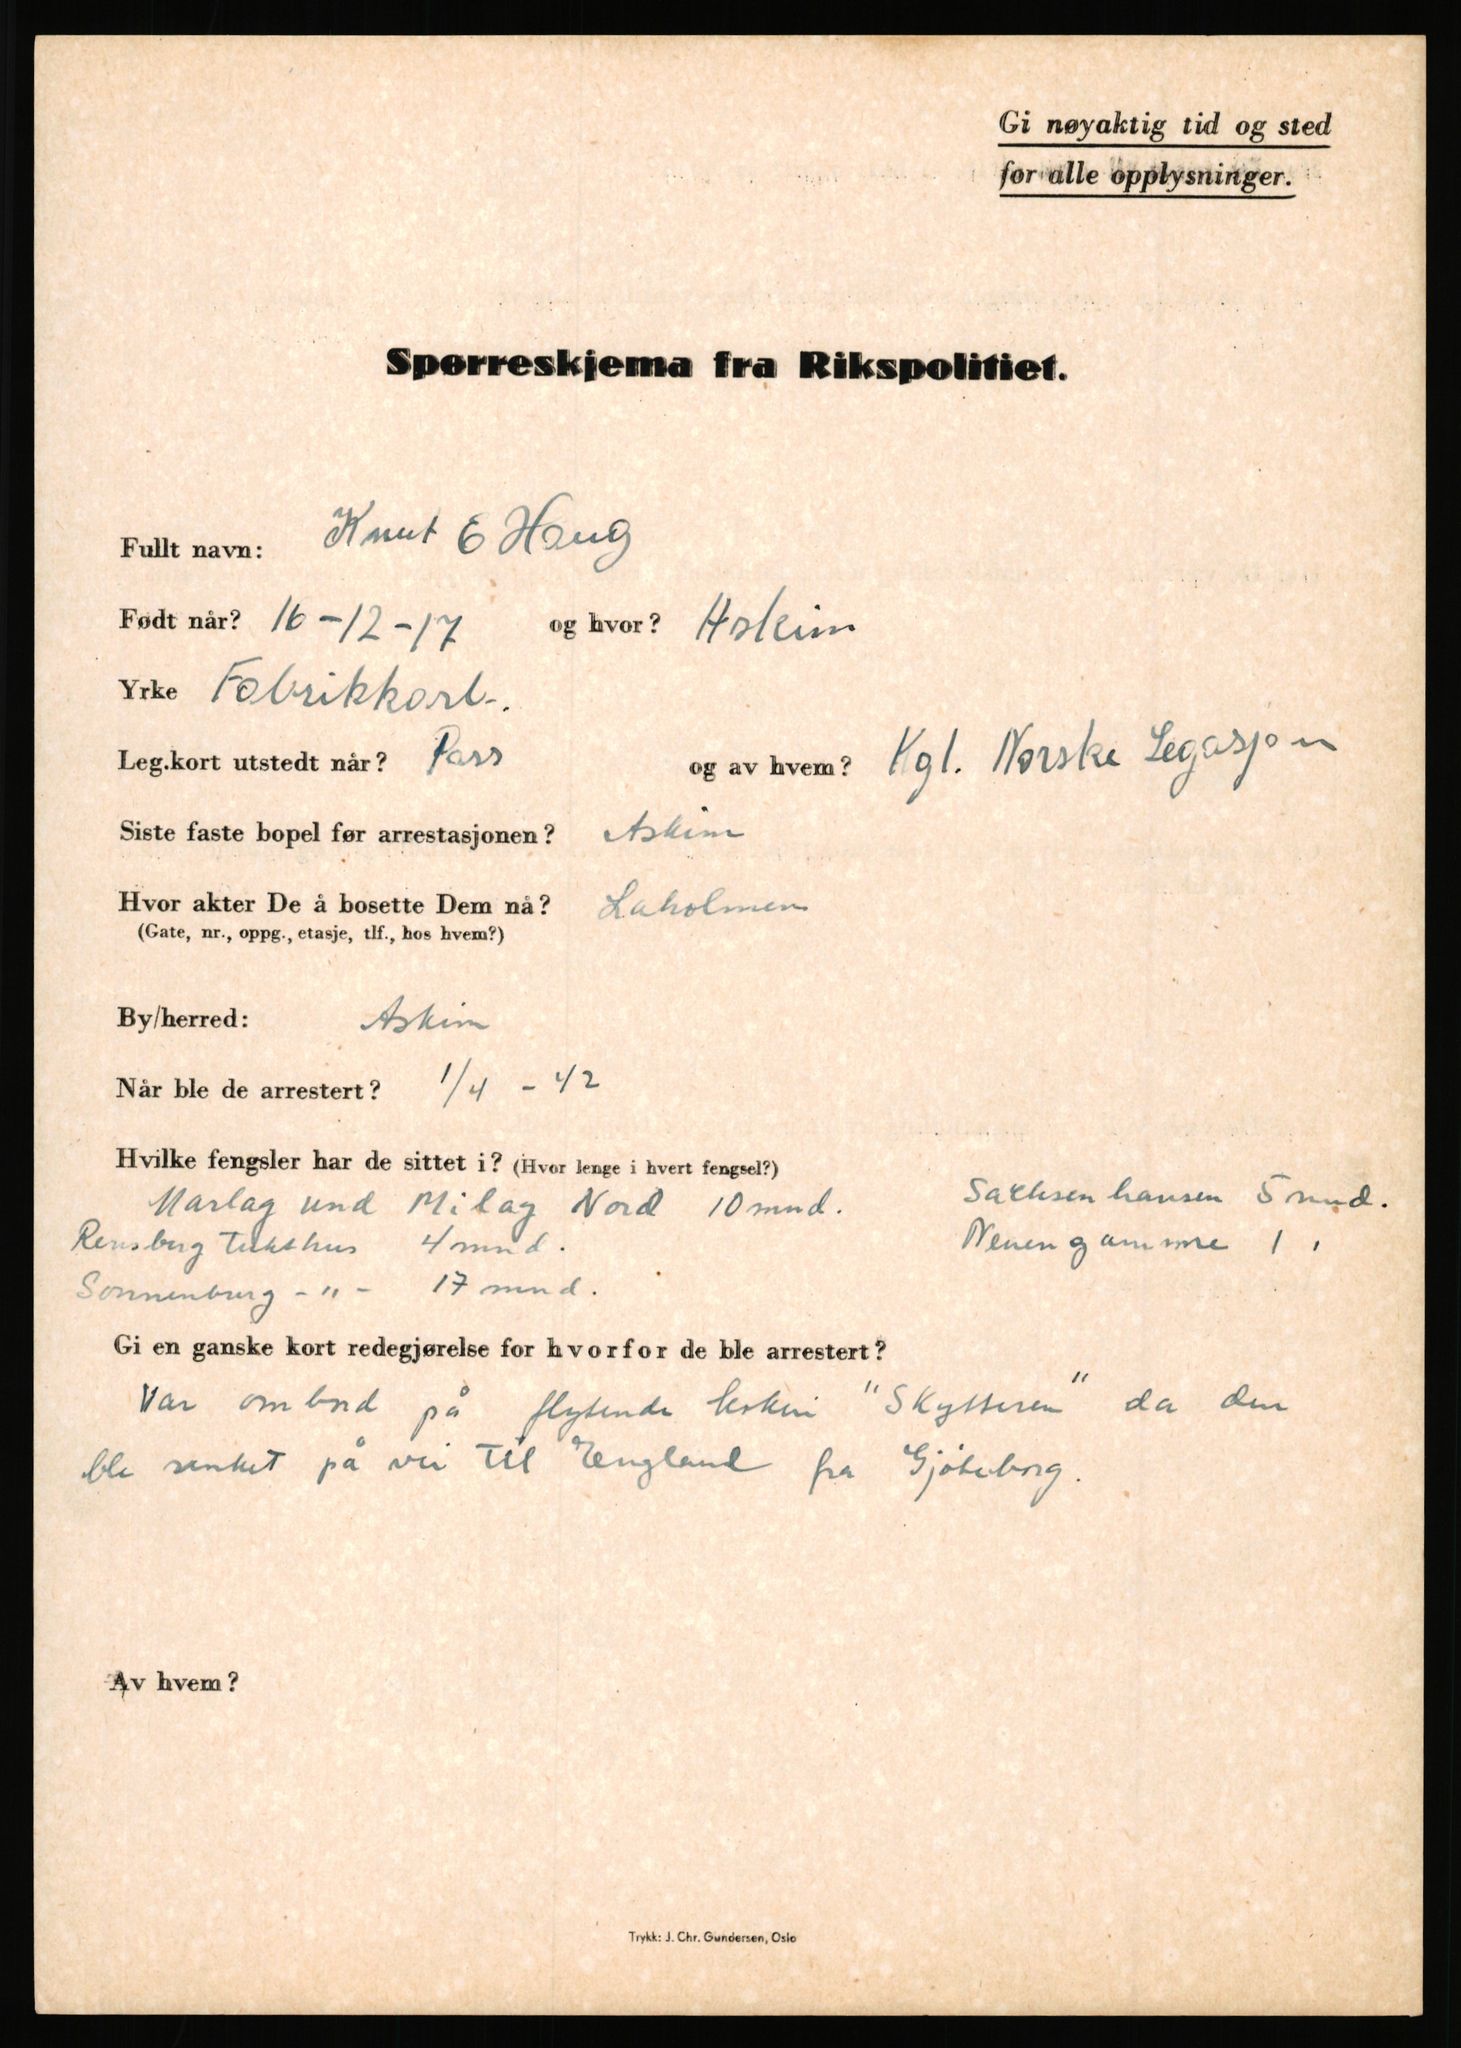 Gi nøyaktig tid og sted
for alle opplysninger.
Spørreskjema fra Rikspolitiet.
Fullt navn: Knut E Haug
Født når? 16-12-17 og hvor? Askim
Yrke Fabrikkarb.
Leg.kort utstedt når? Pass og av hvem? Kgl. Norske Legasjon
Siste faste bopel før arrestasjonen? Askim
Hvor akter De å bosette Dem nå? Laholmen
(Gate, nr., oppg., etasje, tlf., hos hvem?)
By/herred: Askim
Når ble de arrestert? 1/4 - 42
Hvilke fengsler har de sittet i? (Hvor lenge i hvert fengsel?)
Marlag und Milag Nord 10 mnd. Sachsenhausen 5 mnd.
Rensburg tukthus 4 mnd. Neuengamme 1 "
Sonnenburg - " - 17 mnd.
Gi en ganske kort redegjørelse for hvorfor de ble arrestert?
Var ombord på flytende "Skytteren" da den
ble senket på vei til England fra Gjøteborg.
Av hvem?
Trykk: J. Chr. Gundersen, Oslo